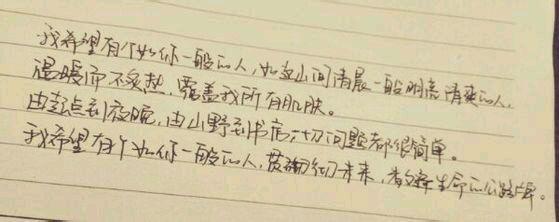 我希望有个如你一般的人，如这山间清晨一般明亮清爽的人，
温暖而不炙热，覆盖我所有肌肤。
由起点到夜晚，由山野到书房，一切问题都很简单。
我希望有个如你一般的人，贯彻未来，数遍生命的公路牌。